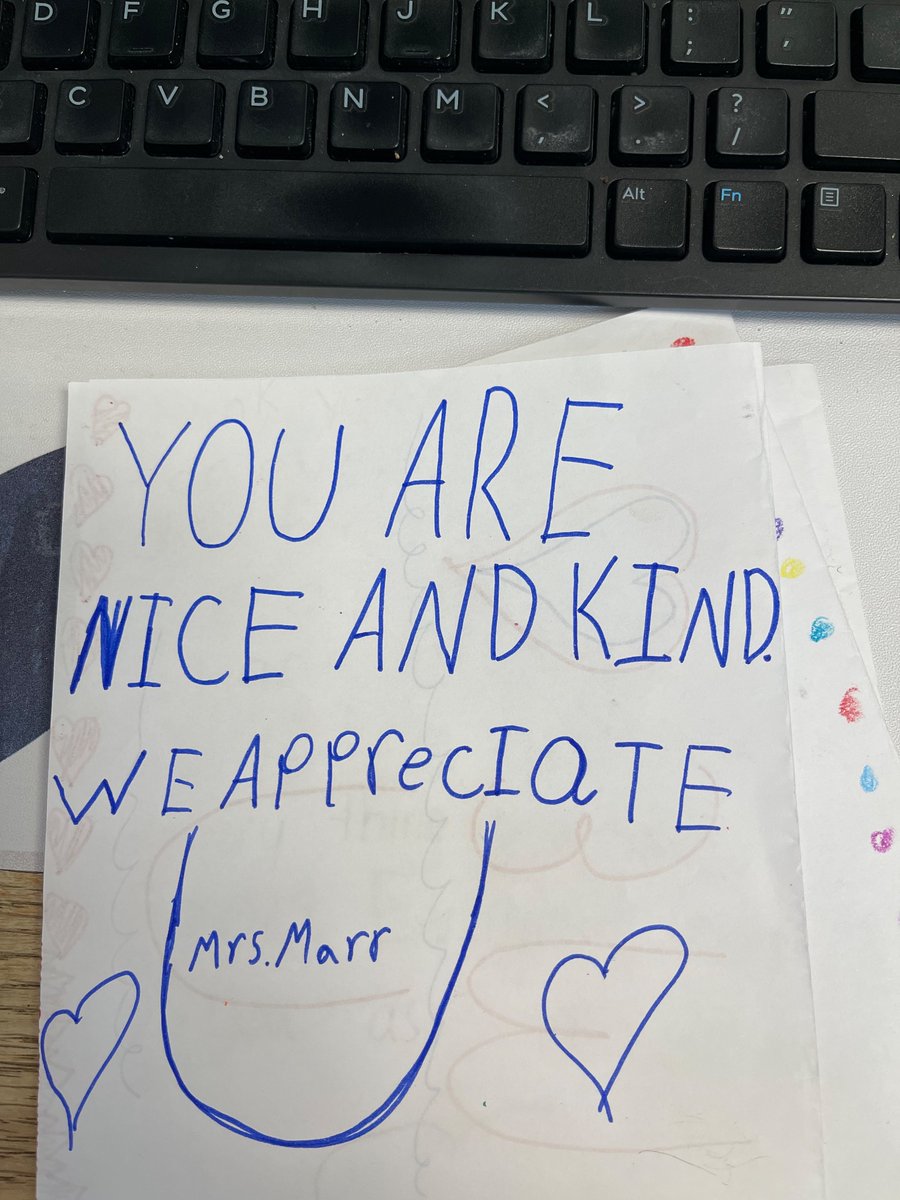 D F G H J K L : ; " '
C V B N M < , > . ? /
Alt Fn
YOU ARE
NICE AND KIND.
WE APPrecIaTE
U
Mrs. Marr